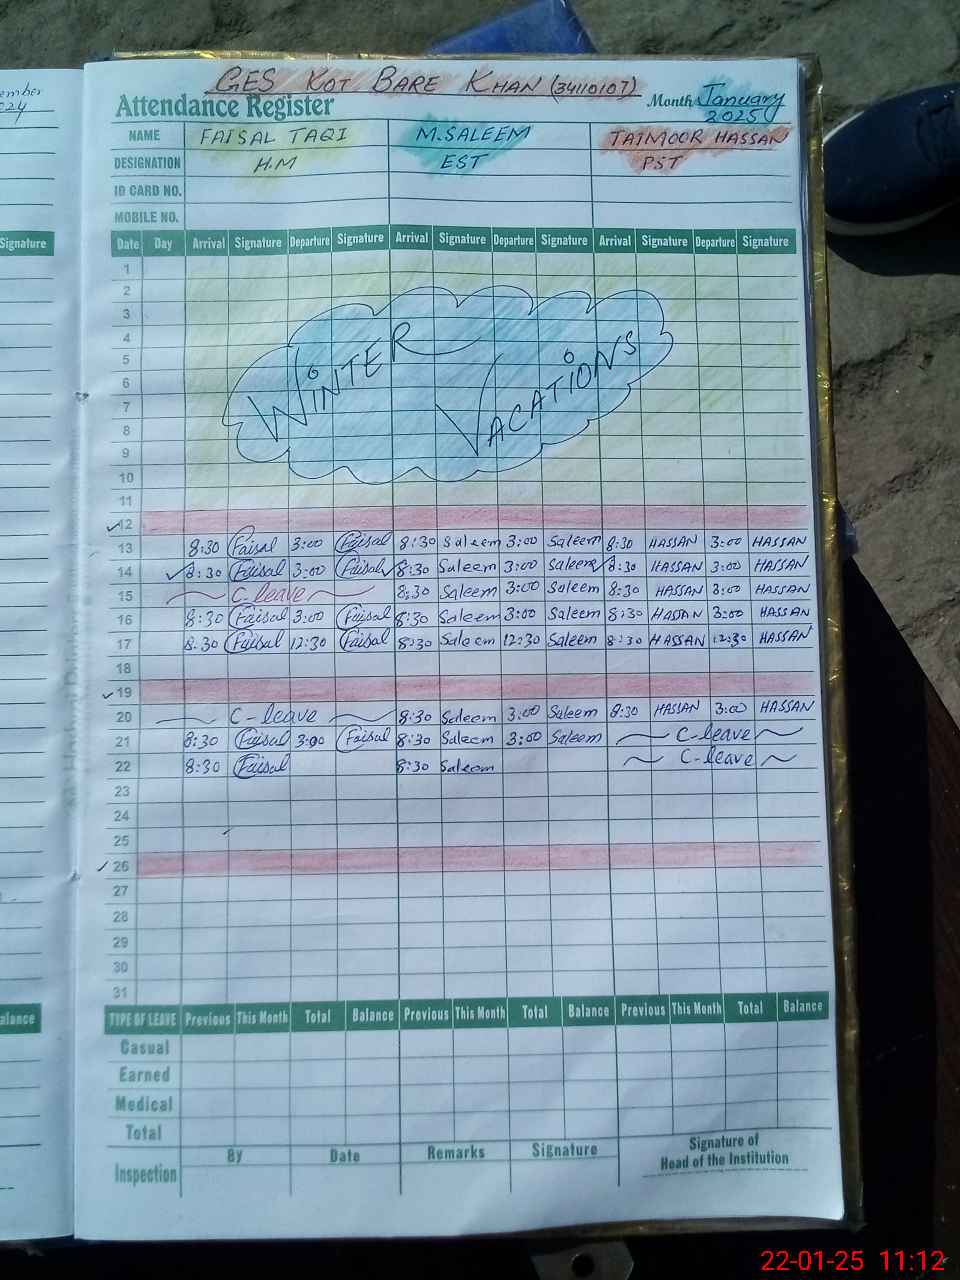 ember
2024
GES KOT BARE KHAN (34110107)
Attendance Register Month January 2025
NAME FAISAL TAQI M.SALEEM TAIMOOR HASSAN
DESIGNATION H.M EST PST
ID CARD NO.
MOBILE NO.
Signature
Date Day Arrival Signature Departure Signature Arrival Signature Departure Signature Arrival Signature Departure Signature
1
2
3
4
5
6
7
8
9
10
11
WINTER VACATIONS
12
13 8:30 Faisal 3:00 Faisal 8:30 Saleem 3:00 Saleem 8:30 HASSAN 3:00 HASSAN
14 8:30 Faisal 3:00 Faisal 8:30 Saleem 3:00 Saleem 8:30 HASSAN 3:00 HASSAN
15 C-leave 8:30 Saleem 3:00 Saleem 8:30 HASSAN 3:00 HASSAN
16 8:30 Faisal 3:00 Faisal 8:30 Saleem 3:00 Saleem 8:30 HASSAN 3:00 HASSAN
17 8:30 Faisal 12:30 Faisal 8:30 Saleem 12:30 Saleem 8:30 HASSAN 12:30 HASSAN
18
19
20 C-leave 8:30 Saleem 3:00 Saleem 8:30 HASSAN 3:00 HASSAN
21 8:30 Faisal 3:00 Faisal 8:30 Saleem 3:00 Saleem C-leave
22 8:30 Faisal 8:30 Saleem C-leave
23
24
25
26
27
28
29
30
31
alance
TYPE OF LEAVE Previous This Month Total Balance Previous This Month Total Balance Previous This Month Total Balance
Casual
Earned
Medical
Total
Inspection By Date Remarks Signature Signature of
Head of the Institution
22-01-25 11:12